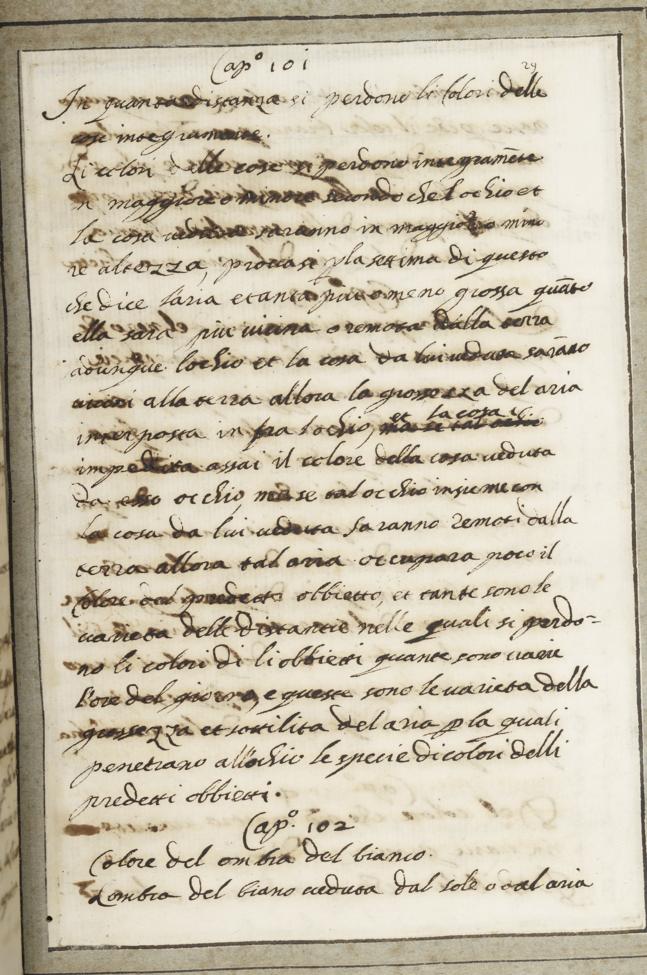 Cap.º 101
29
In quanta distanza si perdono li Colori delle
cose integramente.
Li colori delle cose si perdono integramẽte
in maggiore o minore secondo che l ochio et
la cosa veduta saranno in maggiore o mino
re altezza, provasi p la settima di questo
che dice laria etanta piu o meno grossa quãto
ella sara piu vicina o remota dalla terra
adunque lochio et la cosa da lui veduta sarãno
vicini alla terra allora la grossezza del aria
interposta in fra lochio, et la cosa
impedita assai il colore della cosa veduta
da esso occhio, ma se tal occhio insieme con
la cosa da lui veduta saranno remoti dalla
terra allora tal aria occupara poco il
Colore del predetto obbietto, et tante sono le
varieta delle distantie nelle quali si perdo=
no li colori di li obbietti quante sono varie
l'ore del giorno, e queste sono le varieta della
grossezza et sottilita del aria p la quali
penetrano all'ochio le specie di colori delli
predetti obbietti.
Cap.º 102
Colore del ombra del bianco.
Lombra del biano veduta dal sole o dal aria